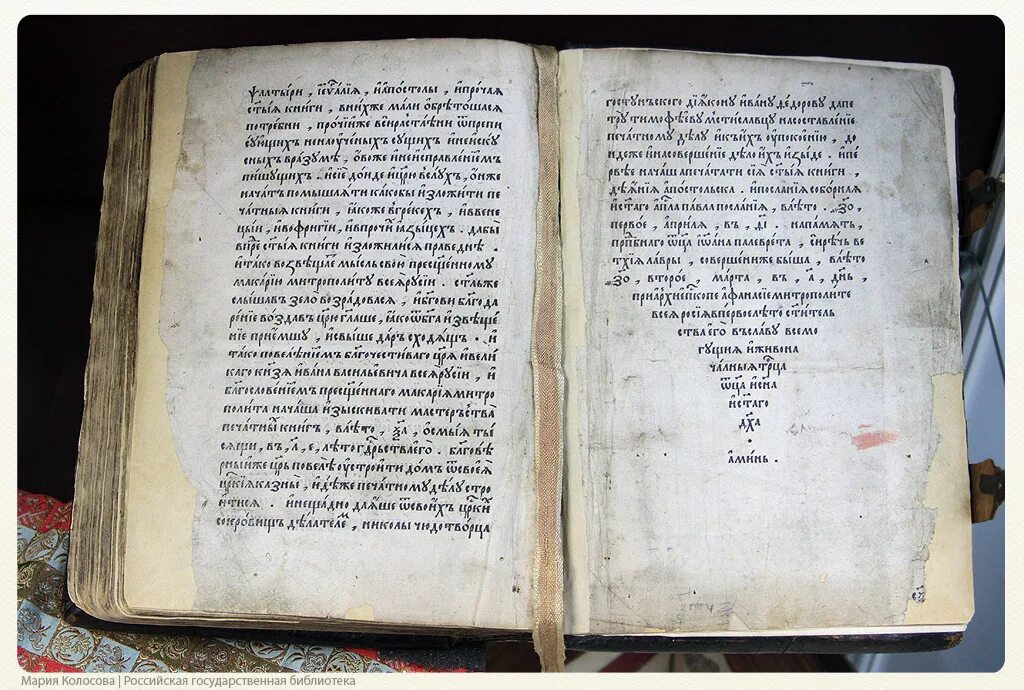 ѱалтыри, і еѵⷢ҇лїѧ, и҆ апостолы, и҆ прочаѧ
ст҃ыѧ книги, в них же мали ѡбрѣтошасѧ
потребни, прочїи же вси растлѣни ѿ препи
сꙋющихъ ненаꙋченыхъ сꙋщихъ и҆ неискꙋ
сныхъ в разꙋмѣ, ѡ҆во же и҆ неисправленїемъ
пишꙋщихъ. и҆ сїе доиде и҆ цр҃ю в слꙋхъ, ѡ҆н же
начатъ помышлѧти како бы и҆зложити пе
чатныѧ книги, ꙗ҆коже в грекехъ, и҆ в вене
цыи, и҆ во фригїи, и҆ в прочиⷯ ꙗ҆зыцехъ. дабы
впреⷣ ст҃ыѧ книги и҆зложилисѧ праведнѣ.
и҆ тако возвѣщаеⷮ мысль свою преѡсщ҃енномꙋ
макарїю митрополитꙋ всеѧ рꙋсїи. ст҃ль же
слышавъ ѕело возрадовасѧ, и҆ бг҃ови бл҃года
ренїе воздавъ цр҃ю гл҃аше, ꙗ҆ко ѿ бг҃а и҆звѣще
нїе прїемшꙋ, и҆ свыше даръ сходѧщъ. и҆
тако повеленїемъ бл҃гочестиваго цр҃ѧ и҆ вели
каго кн҃зѧ и҆вана васильевича всеѧ рꙋсїи, и҆
бл҃гословенїемъ преѡсщ҃еннаго макарїѧ митро
полита начаша изыскивати мастерьства
печатныⷯ книгъ, в лѣто, ҂зⷯ҃а, ѡ҆смыѧ ты
сѧщи, въ, л҃, е, лѣто гдⷭ҇рьства е҆го. бл҃говѣ
рный же цр҃ь повелѣ ꙋстроити домъ ѿ своеѧ
цр҃скїѧ казны, и҆дѣже печатномꙋ дѣлꙋ стро
итисѧ. и҆ нещадно даѧше ѿ своихъ цр҃скиⷯ
сокровищъ дѣлателеⷨ, николы чюдотворца
гостꙋньского дїѧконꙋ и҆ванꙋ ѳедоровꙋ да пе
трꙋ тимоѳѣевꙋ мстиславцꙋ на составленїе
печатномꙋ дѣлꙋ и҆ къ и҆хъ ꙋпокоенїю, до
ндеже и҆ на совершенїе дѣло и҆хъ и҆зыде. и҆ пе
рвѣе начаша печатати сїѧ ст҃ыѧ книги,
дѣѧнїѧ апостольска. и҆ посланїѧ соборнаѧ
и҆ ст҃аго ап҃ла павла посланїѧ, в лѣто ҂зⷪ҃а,
первое, априлѧ, въ, ѳ҃і. на памѧть,
прпⷣбнаго ѿц҃а і҆ѡанна палеврета, сирѣчь ве
тхїѧ лавры, совершени же быша, в лѣто
҂зⷪ҃в, второе, марта, въ, а҃, дн҃ь,
при архиепⷭ҇кпе аѳанасїе митрополите
всеѧ росїѧ в первое лѣто ст҃итель
ства е҆го. въ славꙋ всемо
гꙋщиѧ и҆ живона
чальныѧ трⷪ҇ца
ѿц҃а и҆ сн҃а
и҆ ст҃аго
дх҃а
.
аминь.
Мария Колосова | Российская государственная библиотека